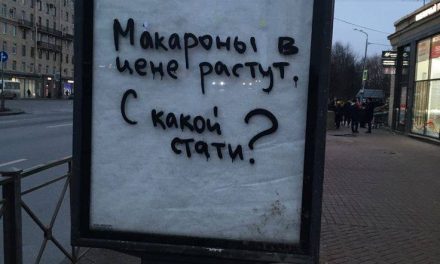 Макароны в
цене растут.
С какой
стати?